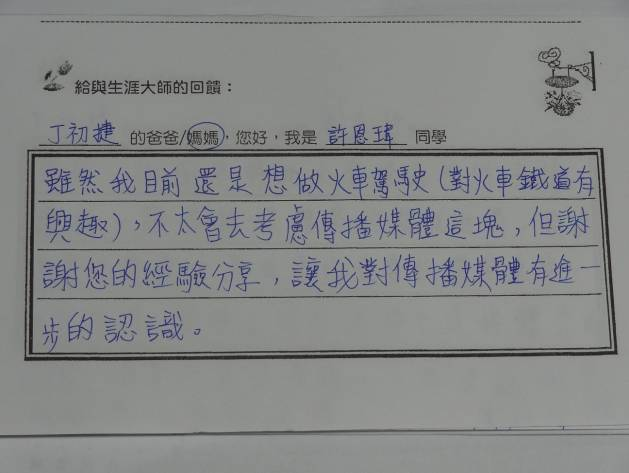 給與生涯大師的回饋：
丁初捷 的爸爸/媽媽，您好，我是 許恩瑋 同學
雖然我目前還是想做火車駕駛(對火車鐵道有
興趣)，不太會去考慮傳播媒體這塊，但謝
謝您的經驗分享，讓我對傳播媒體有進一
步的認識。